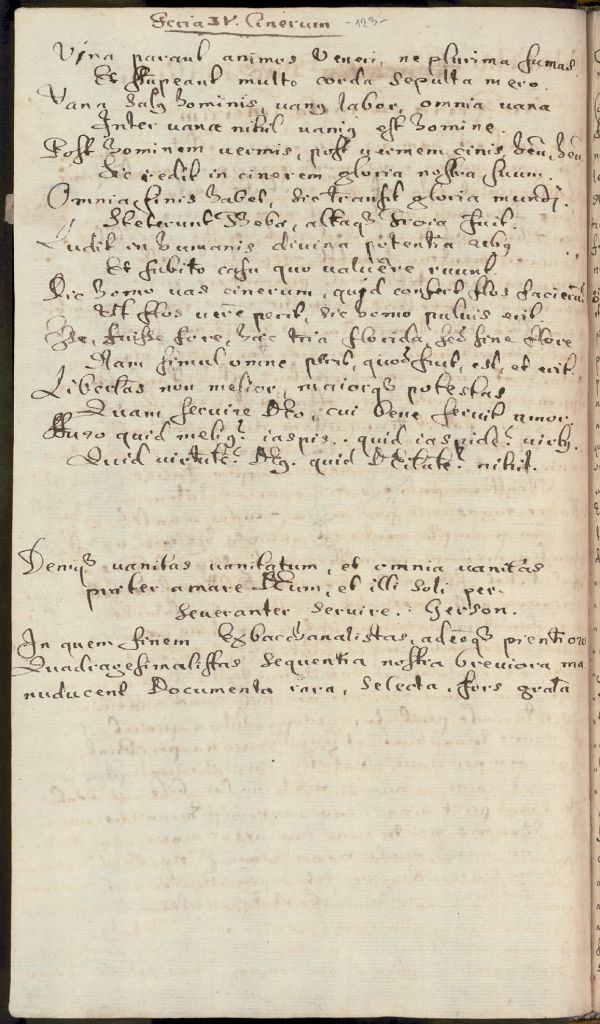 Feria IV. Cinerum -123-
Vina parant animos Veneri, ne plurima sumas
Et stupeant multo corda sepulta mero.
Vana salus hominis, vanus labor, omnia vana
Inter vana nihil vanius est homine.
Post hominem vermis, post vermem cinis heu, heu
Sic redit in cinerem gloria nostra suum.
Omnia finis habet, sic transit gloria mundi.
Steterunt Theba, altaque Troia fuit.
Ludit in humanis divina potentia rebus
Et subito casu quo valuere ruunt.
Sic homo vas cinerum, quid confert flos facierum
Ut flos vere perit, sic homo pulvis erit.
Esse, fuisse, fore, haec tria florida, sed sine flore
Nam simul omne perit, quod fuit, est, et erit.
Libertas non melior, maiorque potestas
Quam servire Deo, cui bene servit amor.
Auro quid melius? iaspis. quid iaspide? virtus.
Quid virtute? Deus. quid Deitate? nihil.
Denique vanitas vanitatum, et omnia vanitas
praeter amare Deum, et illi soli per-
severanter servire. Gerson.
In quem finem Exbacchanalistas, adeoque pientiores
Quadragesimalistas sequentia nostra breviora ma-
nuducent Documenta rara, selecta, fors grata